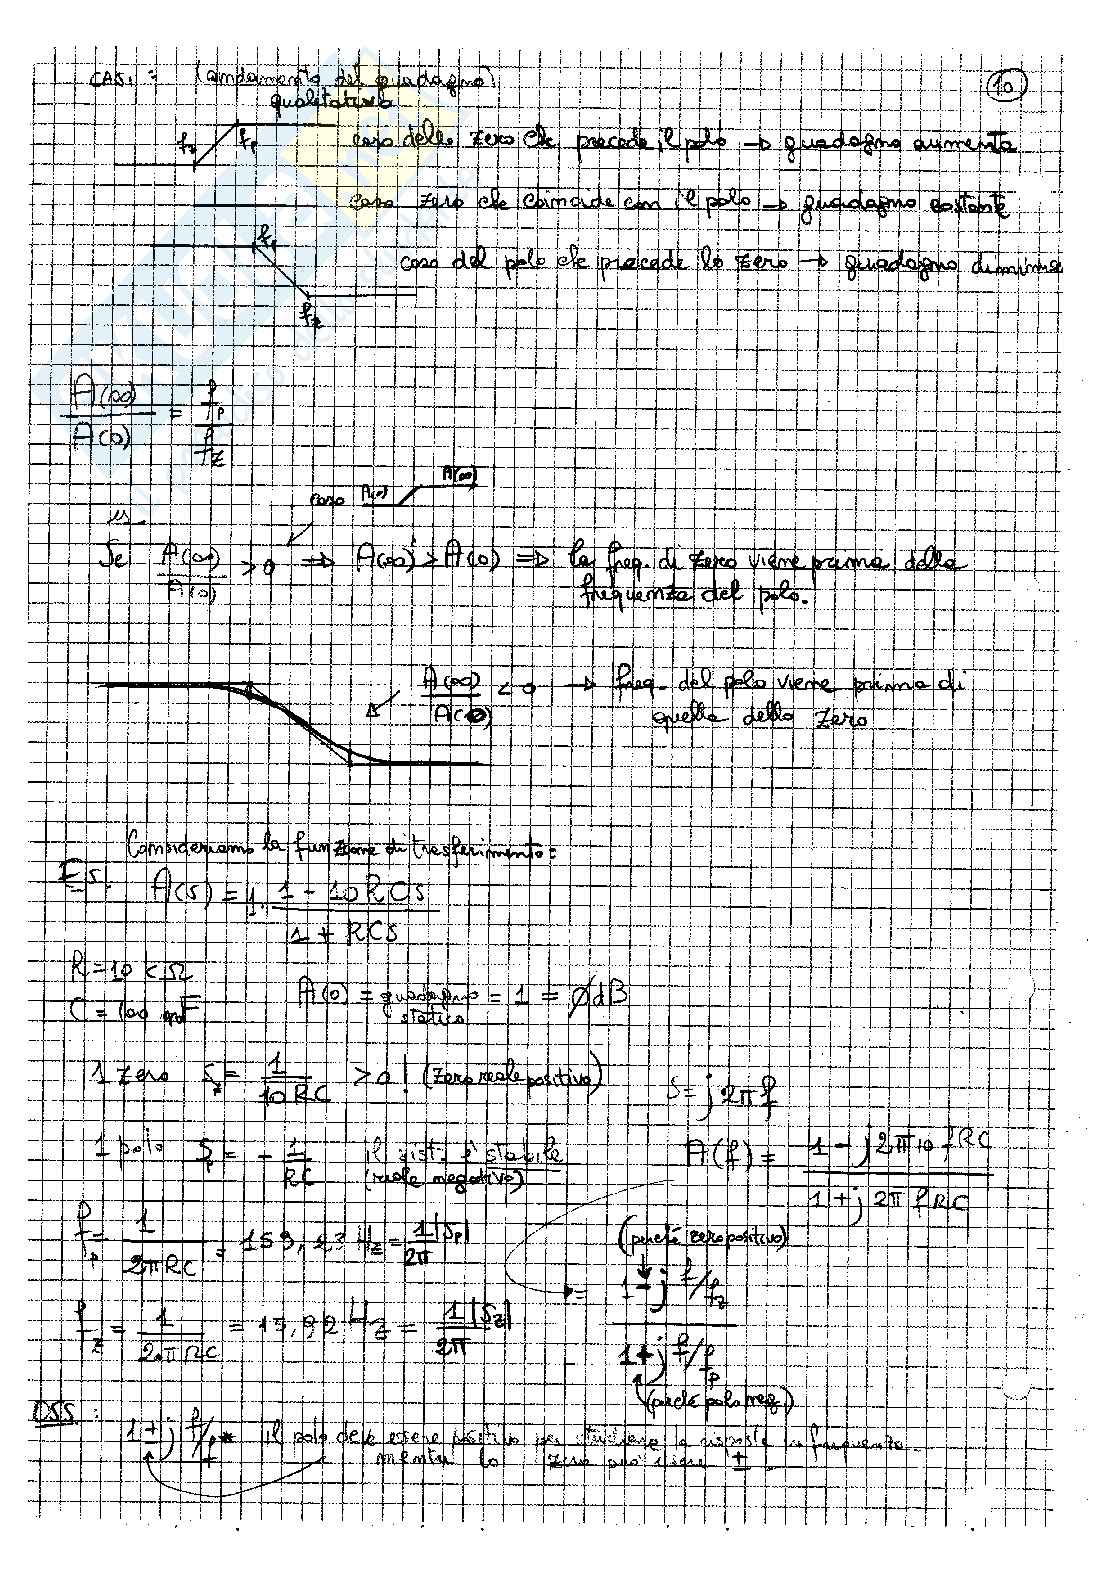 CASI: (andamento del guadagno) 10
qualitativo
fz fp caso dello zero che precede il polo → guadagno aumenta
caso zero che coincide con il polo → guadagno costante
fp
caso del polo che precede lo zero → guadagno diminuisce
fz
A(∞)/A(0) = fp/fz
caso A(0) A(∞)
Se A(∞)/A(0) > 0 ⇒ A(∞) > A(0) ⇒ la freq. di zero viene prima della
frequenza del polo.
A(∞)/A(0) < 0 → freq. del polo viene prima di
quella dello zero
Consideriamo la funzione di trasferimento:
Es. A(s) = 1 · (1 - 10RCs)/(1 + RCs)
R = 10 kΩ
C = 100 F
A(0) = guadagno statico = 1 = ∅ dB
1 zero sz = 1/(10RC) > 0! (zero reale positivo)
s = j2πf
1 polo sp = -1/RC il sist. è stabile
(reale negativo)
A(f) = (1 - j2π10fRC)/(1 + j2πfRC)
fp = 1/(2πRC) = 159,23 Hz = 1/2π |sp|
(perché zero positivo)
= (1 - j f/fz)/(1 + j f/fp)
fz = 1/(2πRC) = 15,92 Hz = 1/2π |sz|
(perché polo neg.)
OSS: 1 + j f/fp* il polo deve essere positivo per studiare la risposta in frequenza
mentre lo zero può essere ±